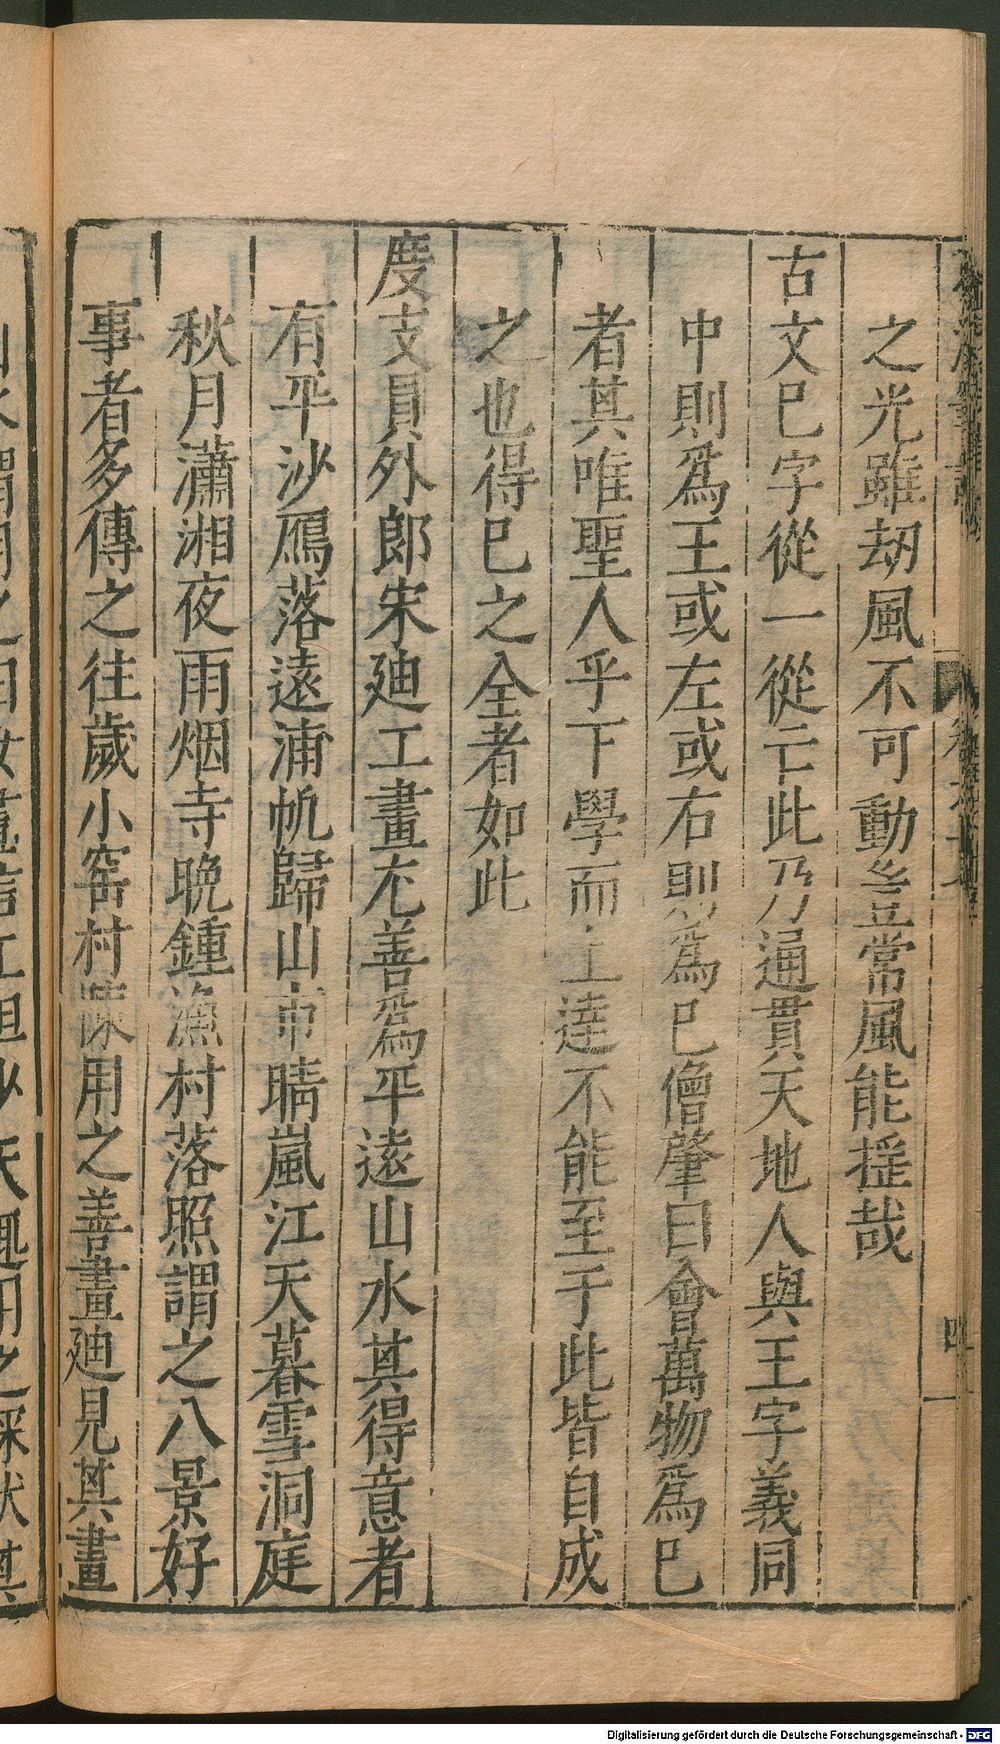 之光雖劫風不可動豈常風能搖哉
古文巳字從一從亡此乃通貫天地人與王字義同
中則爲王或左或右則爲巳僧肇曰會萬物爲巳
者其唯聖人乎下學而上達不能至于此皆自成
之也得巳之全者如此
度支員外郎宋廸工畫尤善爲平遠山水其得意者
有平沙鴈落遠浦帆歸山市晴嵐江天暮雪洞庭
秋月瀟湘夜雨烟寺晩鍾漁村落照謂之八景好
事者多傳之往歲小窑村陳用之善畫廸見其畫
四
Digitalisierung gefördert durch die Deutsche Forschungsgemeinschaft - DFG